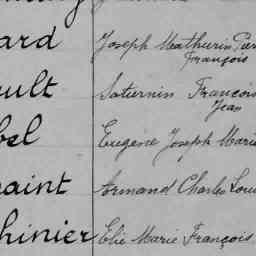 ard Joseph Mathurin Pier
François
ult Saturnin François
Jean
bel Eugène Joseph Marie
aint Armand Charles Loui
hinier Elie Marie François